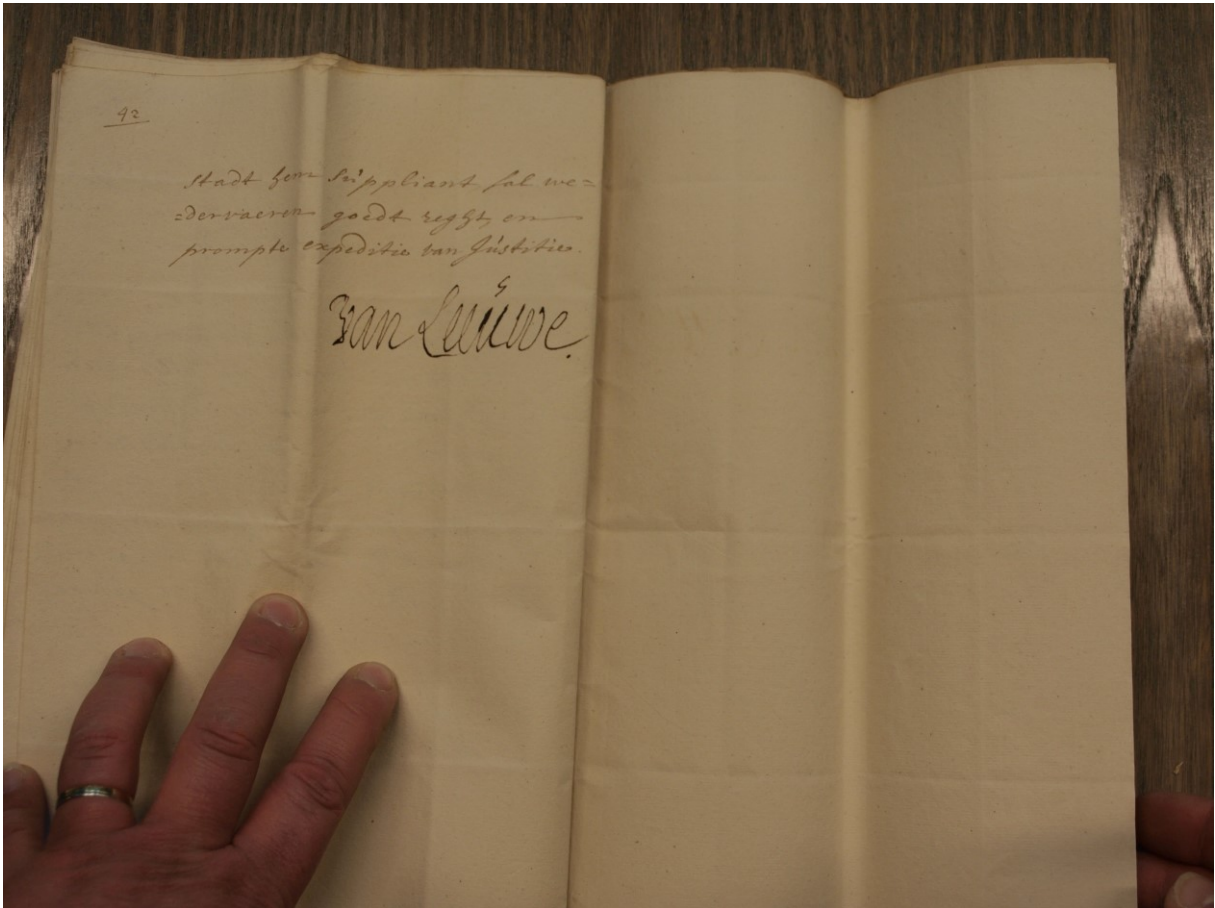 42
Stadt hem Suppliant sal we=
=dervaeren goedt reght, en
prompte expeditie van Justitie.
van Leeúwe.